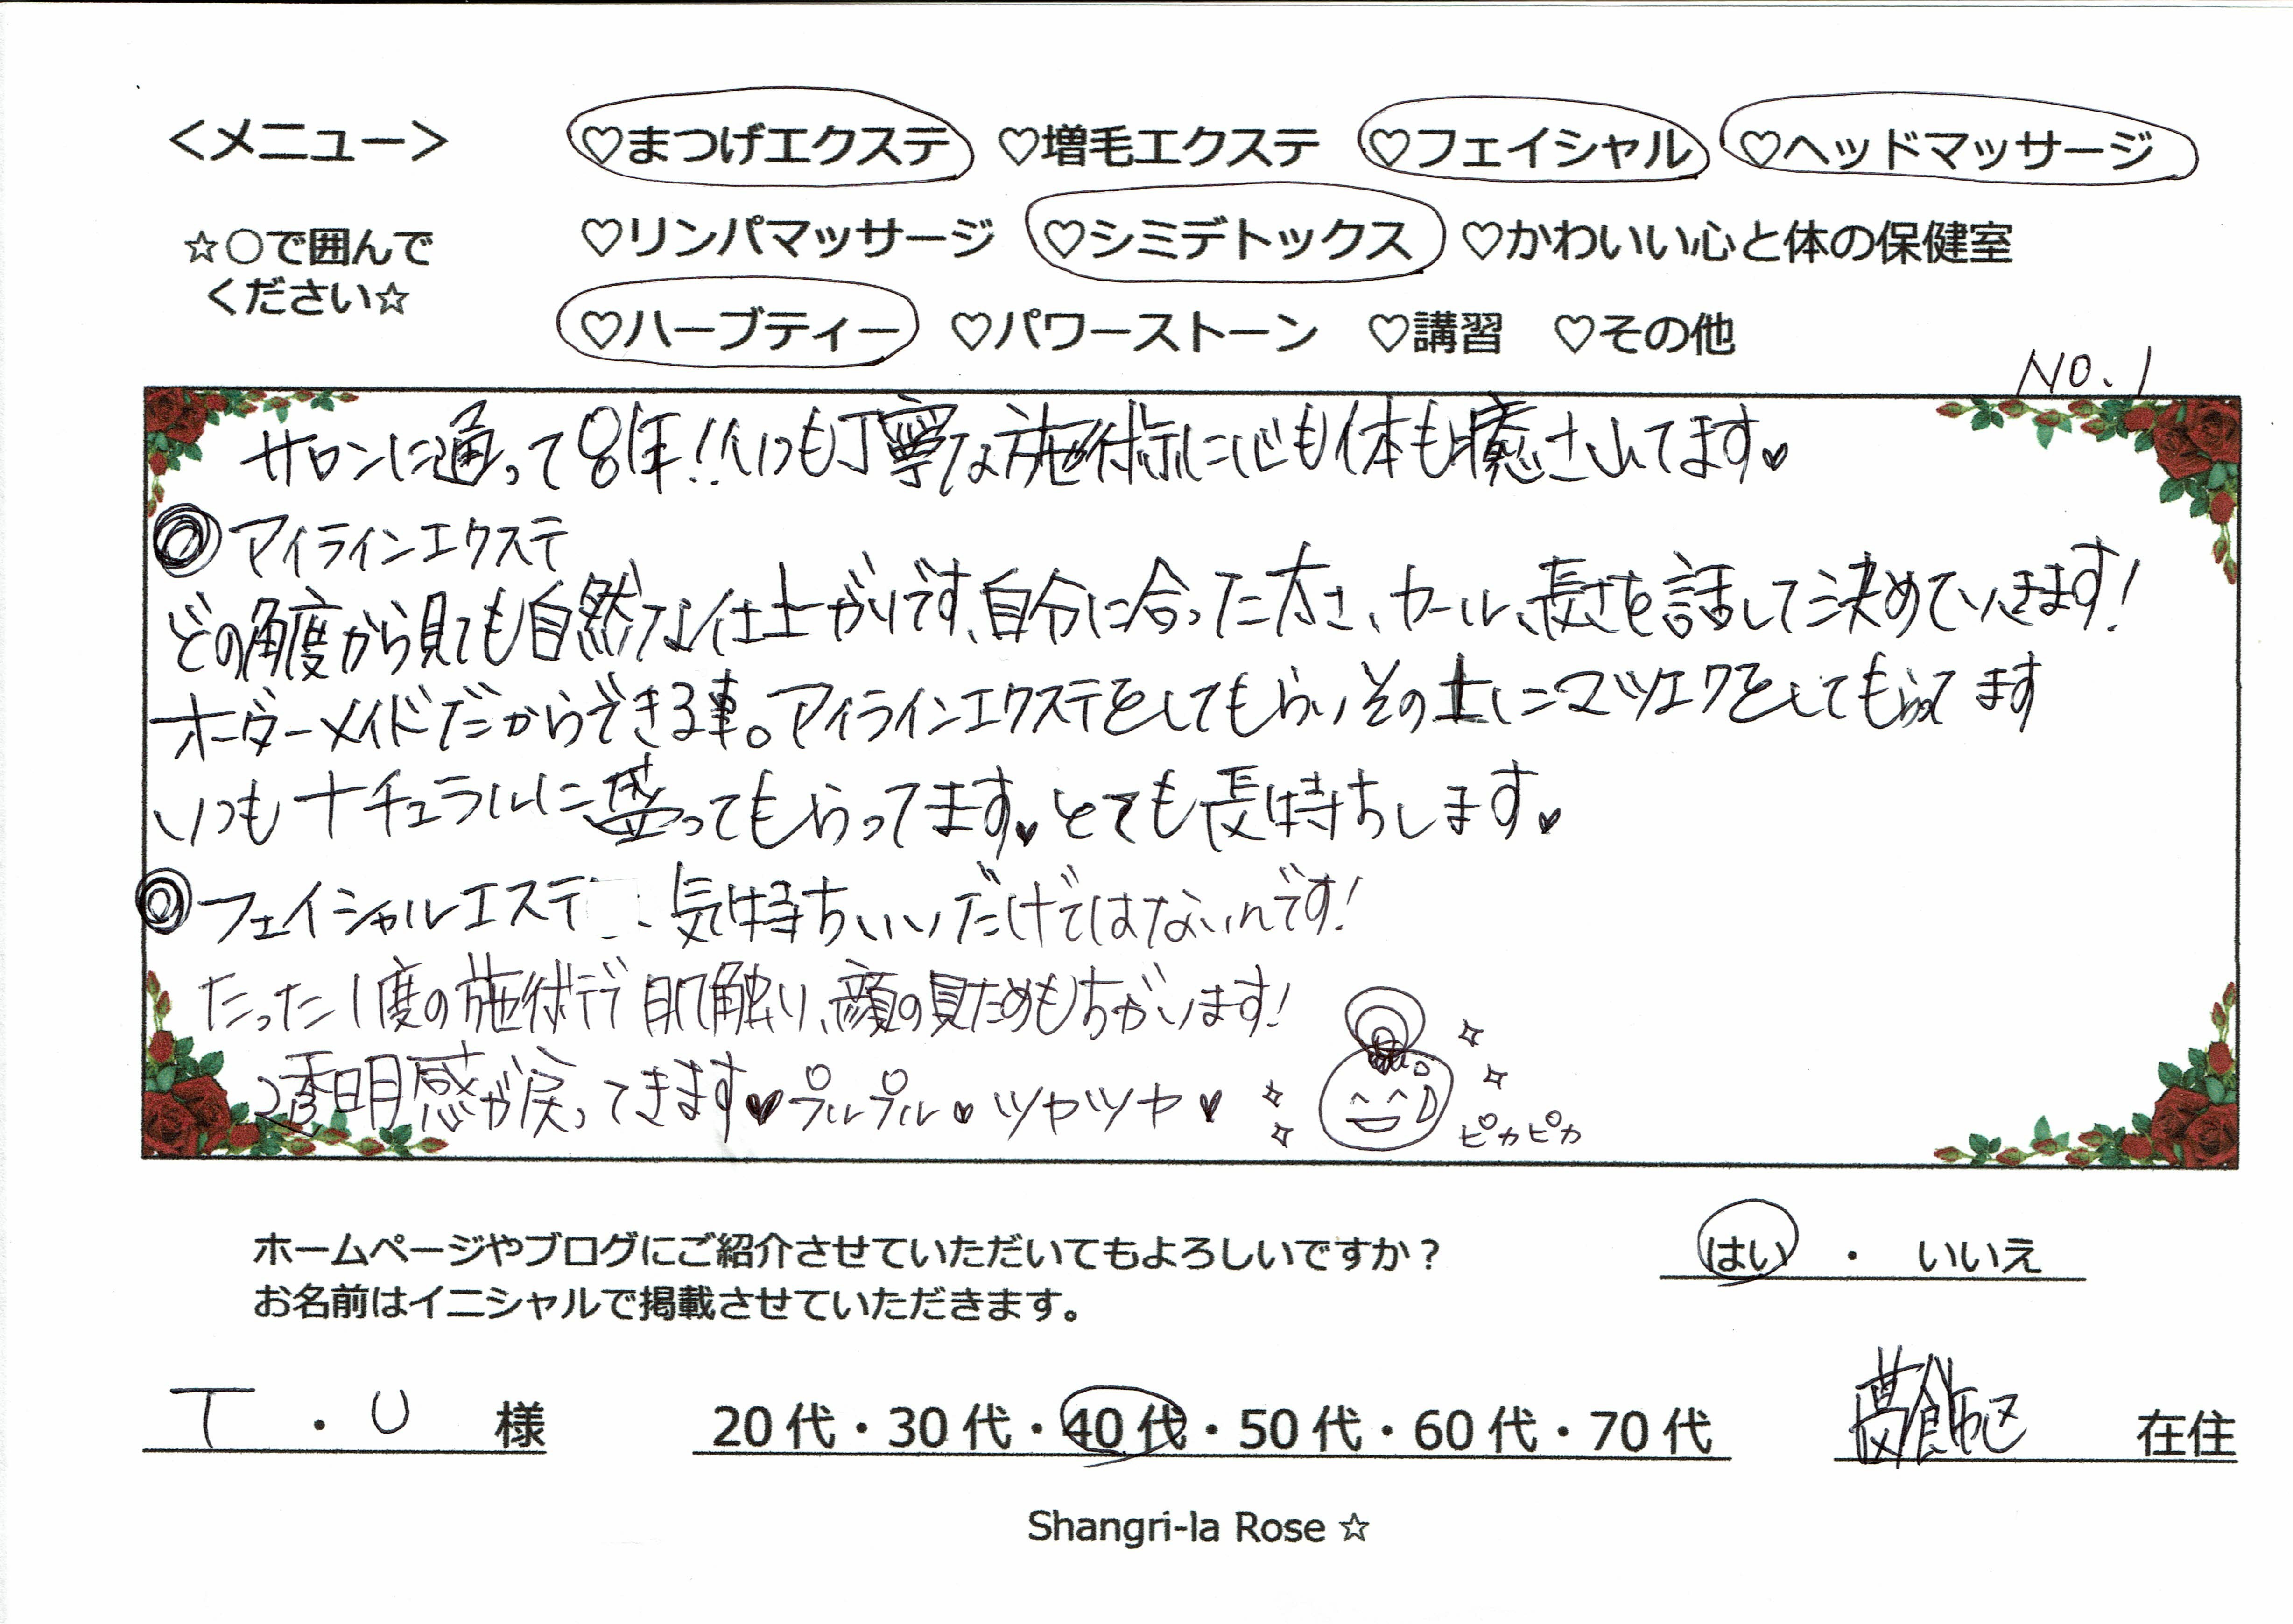 ＜メニュー＞ ♡まつげエクステ ♡増毛エクステ ♡フェイシャル ♡ヘッドマッサージ
☆○で囲んで ♡リンパマッサージ ♡シミデトックス ♡かわいい心と体の保健室
ください☆
♡ハーブティー ♡パワーストーン ♡講習 ♡その他
NO.1
サロンに通って8年!!いつも丁寧な施術に心も体も癒されてます♥
◎アイラインエクステ
どの角度から見ても自然な仕上がりです、自分に合った太さ、カール、長さを話して決めていきます!
オーダーメイドだからできる事。アイラインエクステをしてもらいその上にマツエクをしてもらってます
いつもナチュラルに盛ってもらってます♥とても長持ちします♥
◎フェイシャルエステ、気持ちいいだけではないんです!
たった1度の施術で肌触り、顔の見ためもちがいます!
透明感が戻ってきます♥プルプル♥ツヤツヤ♥
ピカピカ
ホームページやブログにご紹介させていただいてもよろしいですか？ はい ・ いいえ
お名前はイニシャルで掲載させていただきます。
T ・ U 様 20代・30代・40代・50代・60代・70代 葛飾区 在住
Shangri-la Rose ☆